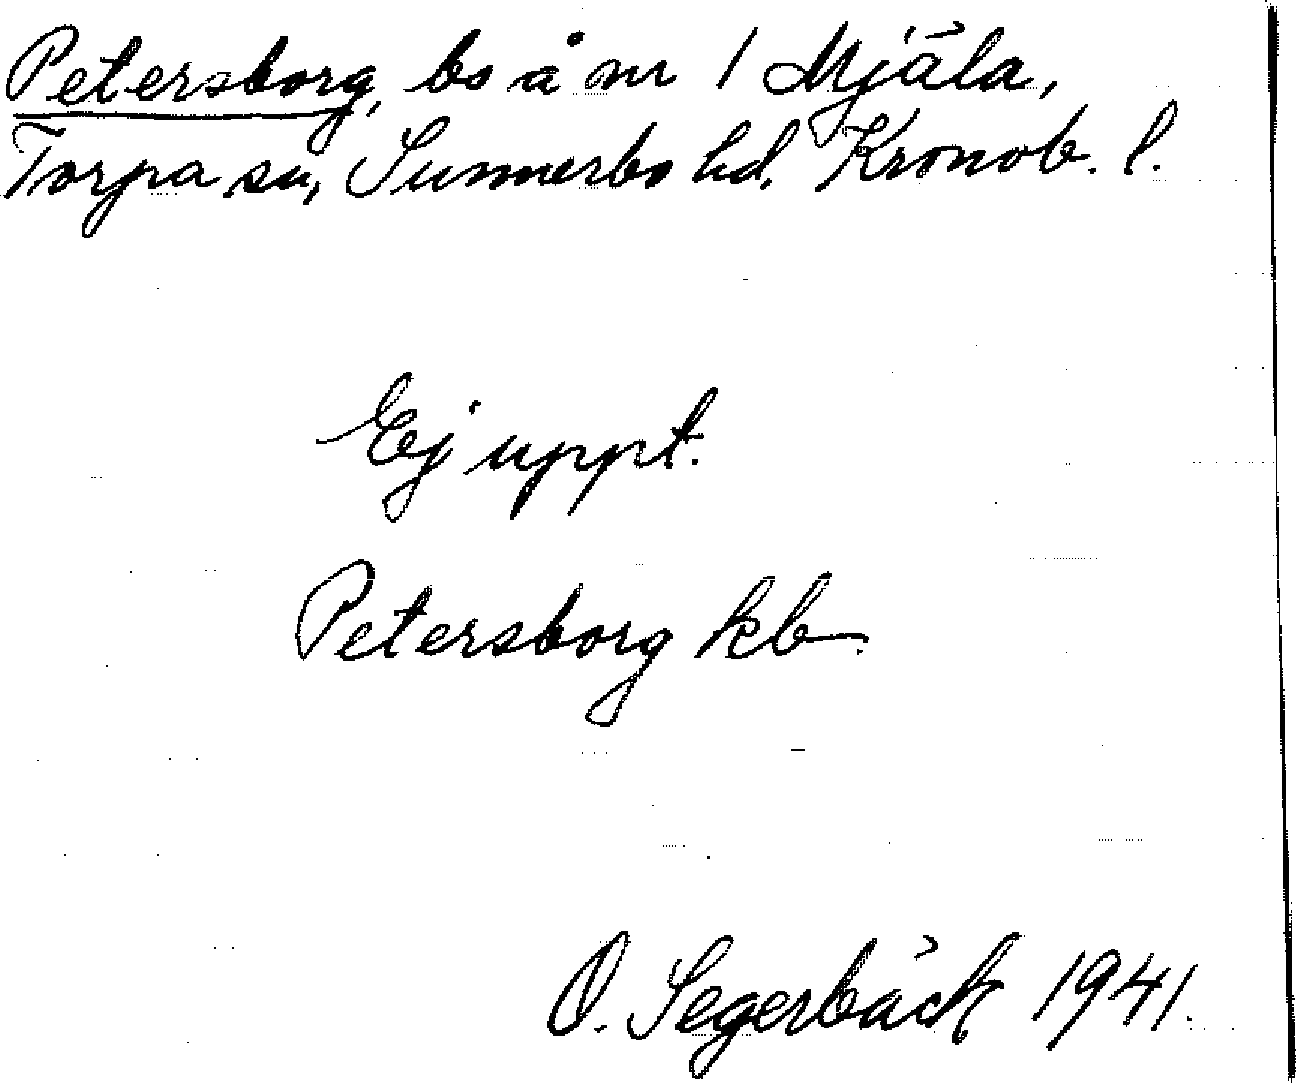 Petersborg, bs å nr 1 Mjäla,
Torpa sn, Sunnerbo hd. Kronob. l.
Ej uppt.
Petersborg kb.
O. Segerbäck 1941.